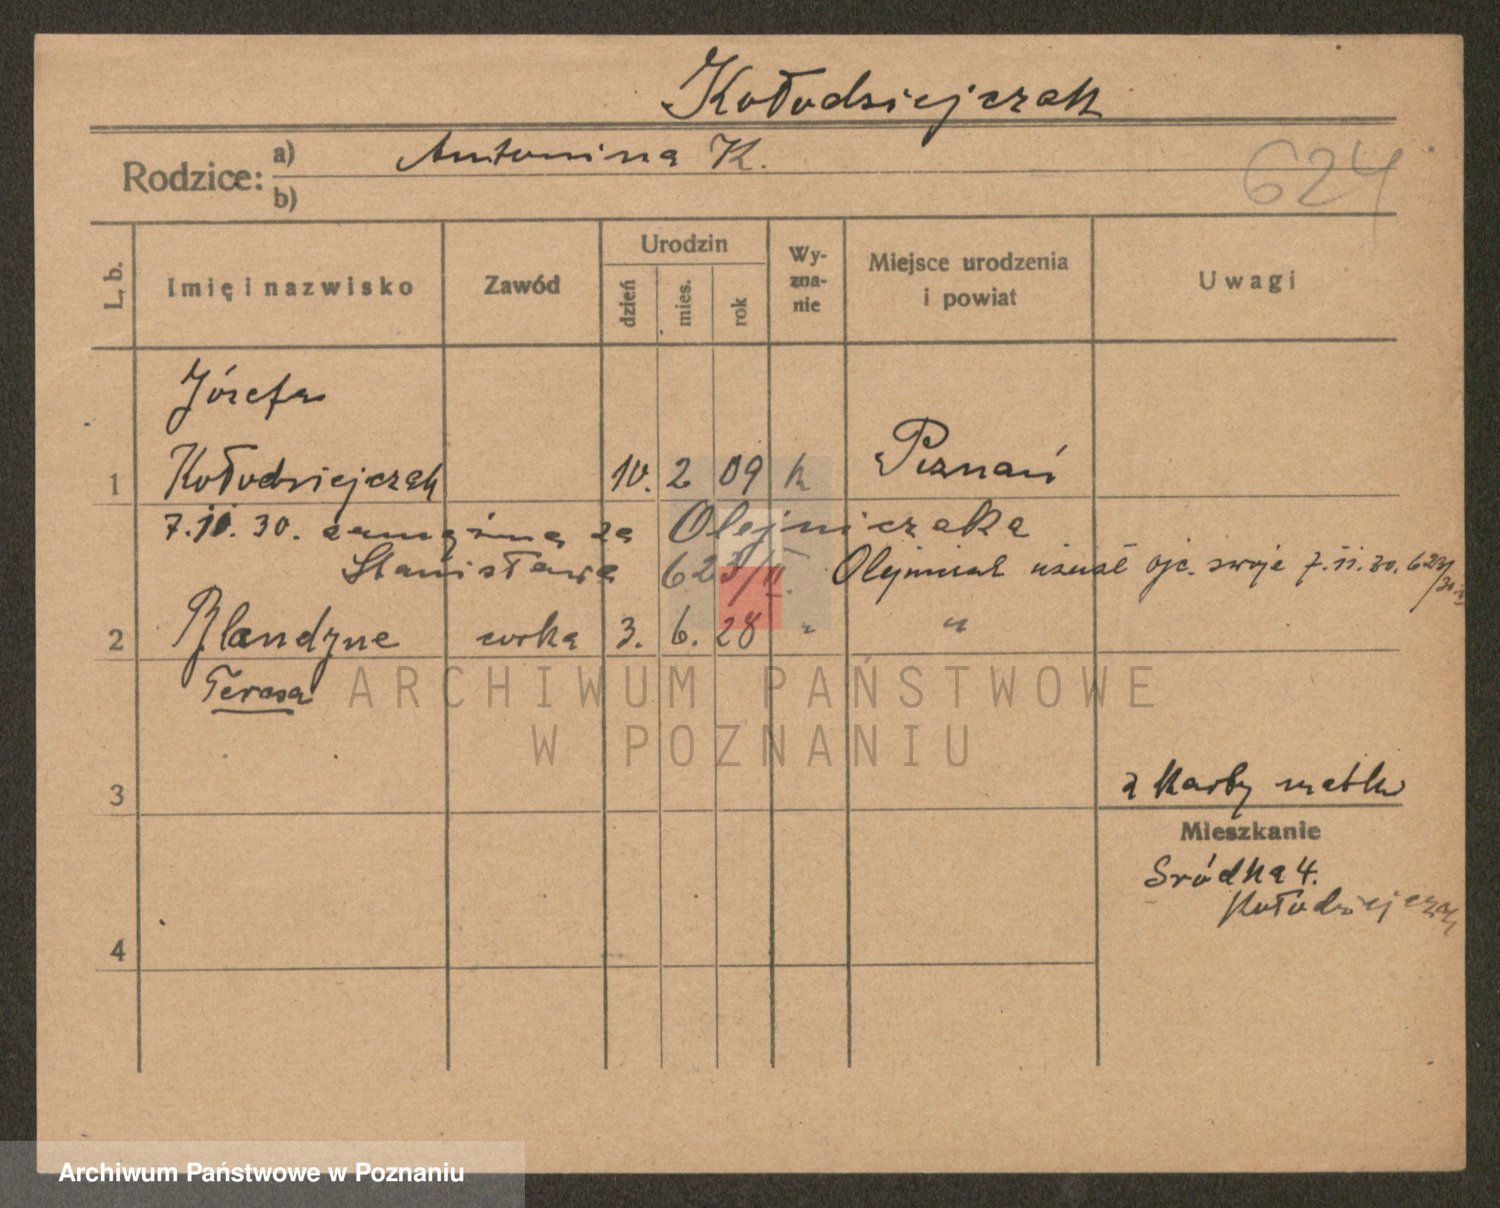 Kołodziejczak
Rodzice: a) Antonina K.
b)
624
L. b. Imię i nazwisko Zawód Urodzin dzień mies. rok Wy-zna-nie Miejsce urodzenia i powiat Uwagi
Józefa
1 Kołodziejczak 10. 2 09 k Poznań
7.11.30. zamężna za Olejniczaka
Stanisława 623/II. Olejniczak uznał ojc. swoje 7.11.30. 623/30
2 Blandyne córka 3. 6. 28 " "
Teresa
ARCHIWUM PAŃSTWOWE
W POZNANIU
3 z karty matki
Mieszkanie
Sródka 4.
Kołodziejczak
4
Archiwum Państwowe w Poznaniu